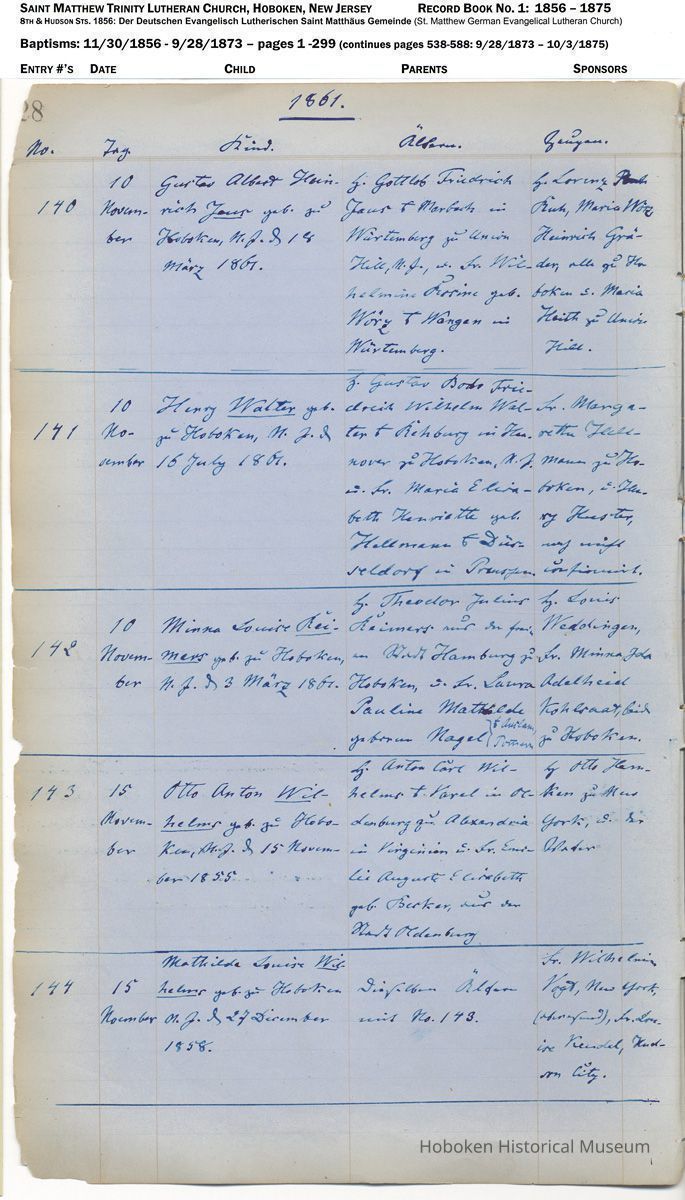 SAINT MATTHEW TRINITY LUTHERAN CHURCH, HOBOKEN, NEW JERSEY RECORD BOOK NO. 1: 1856 – 1875
8TH & HUDSON STS. 1856: Der Deutschen Evangelisch Lutherischen Saint Matthäus Gemeinde (St. Matthew German Evangelical Lutheran Church)
Baptisms: 11/30/1856 - 9/28/1873 – pages 1 -299 (continues pages 538-588: 9/28/1873 – 10/3/1875)
ENTRY #'S DATE CHILD PARENTS SPONSORS
28
1861.
No. Tag. Kind. Ältern. Zeugen.
140
10
Novem-
ber
Gustav Albert Hein-
rich Jaus geb. zu
Hoboken, N. J. d. 18
März 1861.
H. Gottlob Friedrich
Jaus & Marbach in
Würtemberg zu Union
Hill, N. J., u. Fr. Wil-
helmine Rosine geb.
Wörz & Wangen in
Würtemberg.
H. Lorenz
Ruh, Maria Wörz
Heinrich Grä-
der, alle zu Ho-
boken u. Maria
Heith zu Union
Hill.
141
10
No-
vember
Henry Walter geb.
zu Hoboken, N. J. d.
16 July 1861.
H. Gustav Bodo Frie-
drich Wilhelm Wal-
ter & Rehburg in Han-
nover zu Hoboken, N. J.
u. Fr. Maria Elisa-
beth Henriette geb.
Hellmann & Düs-
seldorf in Preussen.
Fr. Marga-
retha Hell-
mann zu Ho-
boken, u. Hen-
ry Hester,
noch nicht
confirmirt.
142
10
Novem-
ber
Minna Louise Rei-
mers geb. zu Hoboken,
N. J. d. 3 März 1861.
H. Theodor Julius
Reimers aus der freien
Stadt Hamburg zu
Hoboken, u. Fr. Laura
Pauline Mathilde
geborene Nagel
H. Louis
Weddingen,
Fr. Minna Ida
Adelheid
Kohlsaat, beide
zu Hoboken.
143
15
Novem-
ber
Otto Anton Wil-
helms geb. zu Hobo-
ken, N. J. d. 15 Novem-
ber 1855
H. Anton Carl Wil-
helms & Varel in Ol-
denburg zu Alexandria
in Virginien u. Fr. Emi-
lie Auguste Elisabeth
geb. Becker, aus der
Stadt Oldenburg
H. Otto Ham-
ken zu New
York, u. der
Vater
144
15
November
Mathilda Louise Wil-
helms geb. zu Hoboken
N. J. d. 27 December
1858.
Dieselben Ältern
mit No. 143.
Fr. Wilhelmine
Vogt, New York,
(abwesend), Fr. Lou-
ise Kendel, Hud-
son City.
Hoboken Historical Museum